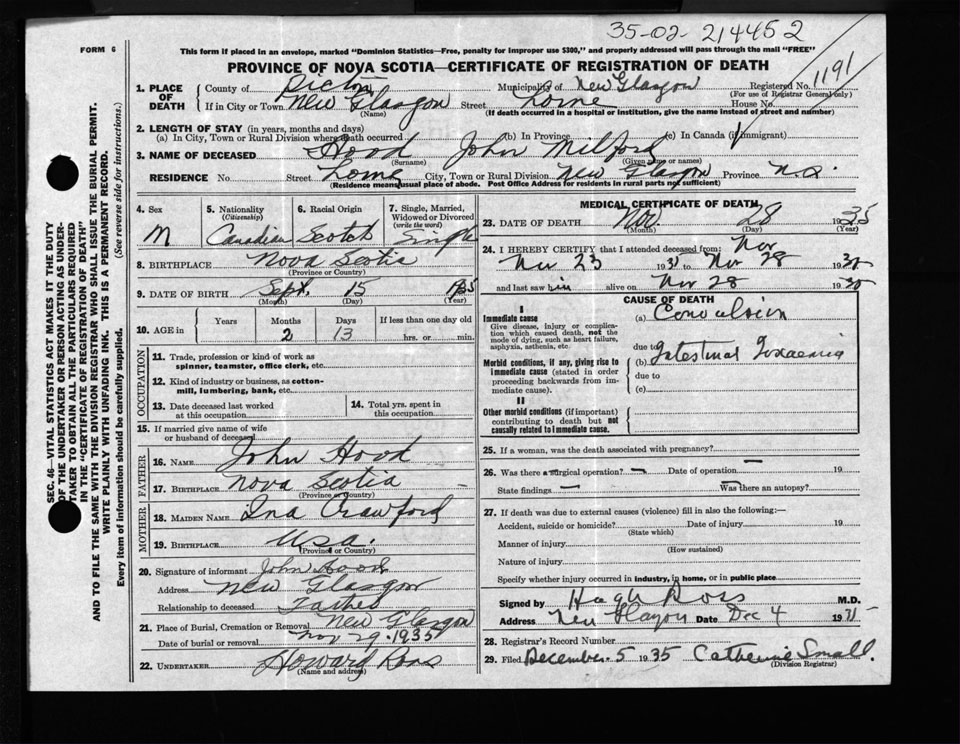 35-02-214452
FORM 6
1191
This form if placed in an envelope, marked "Dominion Statistics—Free, penalty for improper use $300," and properly addressed will pass through the mail "FREE"
PROVINCE OF NOVA SCOTIA—CERTIFICATE OF REGISTRATION OF DEATH
1. PLACE OF DEATH County of Pictou Municipality of New Glasgow Registered No.
(For use of Registrar General only)
If in City or Town New Glasgow Street Lorne House No.
(Name) (If death occurred in a hospital or institution, give the name instead of street and number)
2. LENGTH OF STAY (in years, months and days)
(a) In City, Town or Rural Division where death occurred (b) In Province (c) In Canada (if immigrant)
3. NAME OF DECEASED Hood John Milford
(Surname) (Given name or names)
RESIDENCE No. Street Lorne City, Town or Rural Division New Glasgow Province N.S.
(Residence means usual place of abode. Post Office Address for residents in rural parts not sufficient)
4. Sex M
5. Nationality (Citizenship) Canadian
6. Racial Origin Scotch
7. Single, Married, Widowed or Divorced (write the word) Single
8. BIRTHPLACE Nova Scotia
(Province or Country)
9. DATE OF BIRTH Sept. 15 1935
(Month) (Day) (Year)
10. AGE in Years Months 2 Days 13 If less than one day old
hrs. or min.
OCCUPATION
11. Trade, profession or kind of work as spinner, teamster, office clerk, etc.
12. Kind of industry or business, as cotton-mill, lumbering, bank, etc.
13. Date deceased last worked at this occupation
14. Total yrs. spent in this occupation
15. If married give name of wife or husband of deceased
FATHER
16. NAME John Hood
17. BIRTHPLACE Nova Scotia
(Province or Country)
MOTHER
18. MAIDEN NAME Ina Crawford
19. BIRTHPLACE U.S.A.
(Province or Country)
20. Signature of informant John Hood
Address New Glasgow
Relationship to deceased Father
21. Place of Burial, Cremation or Removal New Glasgow
Date of burial or removal Nov 29 1935
22. UNDERTAKER Howard Ross
(Name and address)
MEDICAL CERTIFICATE OF DEATH
23. DATE OF DEATH Nov. 28 1935
(Month) (Day) (Year)
24. I HEREBY CERTIFY that I attended deceased from: Nov
Nov 23 1935 to Nov 28 1935
and last saw him alive on Nov 28 1935
CAUSE OF DEATH
I
Immediate cause
Give disease, injury or complication which caused death, not the mode of dying, such as heart failure, asphyxia, asthenia, etc.
(a) Convulsion
due to
Morbid conditions, if any, giving rise to immediate cause (stated in order proceeding backwards from immediate cause).
(b) Intestinal Toxaemia
due to
(c)
II
Other morbid conditions (if important) contributing to death but not causally related to immediate cause.
25. If a woman, was the death associated with pregnancy?
26. Was there a surgical operation? — Date of operation — 19
State findings — Was there an autopsy? —
27. If death was due to external causes (violence) fill in also the following:—
Accident, suicide or homicide? Date of injury 19
(State which)
Manner of injury
(How sustained)
Nature of injury
Specify whether injury occurred in industry, in home, or in public place
Signed by Hugh Ross M.D.
Address New Glasgow Date Dec 4 1935
28. Registrar's Record Number
29. Filed December 5 1935 Catherine Small.
(Division Registrar)
SEC. 46—VITAL STATISTICS ACT MAKES IT THE DUTY
OF THE UNDERTAKER OR PERSON ACTING AS UNDER-
TAKER TO OBTAIN ALL THE PARTICULARS REQUIRED
IN THE "CERTIFICATE OF REGISTRATION OF DEATH"
AND TO FILE THE SAME WITH THE DIVISION REGISTRAR WHO SHALL ISSUE THE BURIAL PERMIT.
WRITE PLAINLY WITH UNFADING INK. THIS IS A PERMANENT RECORD.
Every item of information should be carefully supplied. (See reverse side for instructions.)